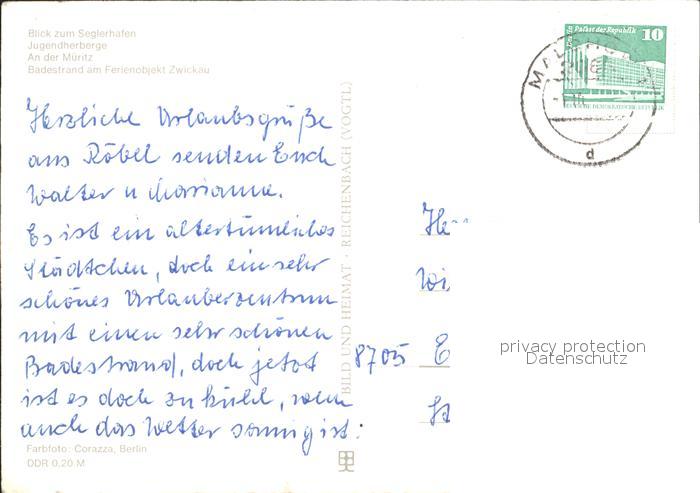 Blick zum Seglerhafen
Jugendherberge
An der Müritz
Badestrand am Ferienobjekt Zwickau
Palast der Republik 10
DEMOKRATISCHE REPUBLIK
d
Herzliche Urlaubsgrüße
aus Röbel senden Euch
Walter u Marianne.
Es ist ein altertümliches
Städtchen, doch ein sehr
schönes Urlauberzentrum
mit einen sehr schönen
Badestrand, doch jetzt
ist es doch zu kühl, wenn
auch das Wetter sonnig ist.
BILD UND HEIMAT · REICHENBACH (VOGTL)
8705 E
privacy protection
Datenschutz
Farbfoto: Corazza, Berlin
DDR 0,20 M